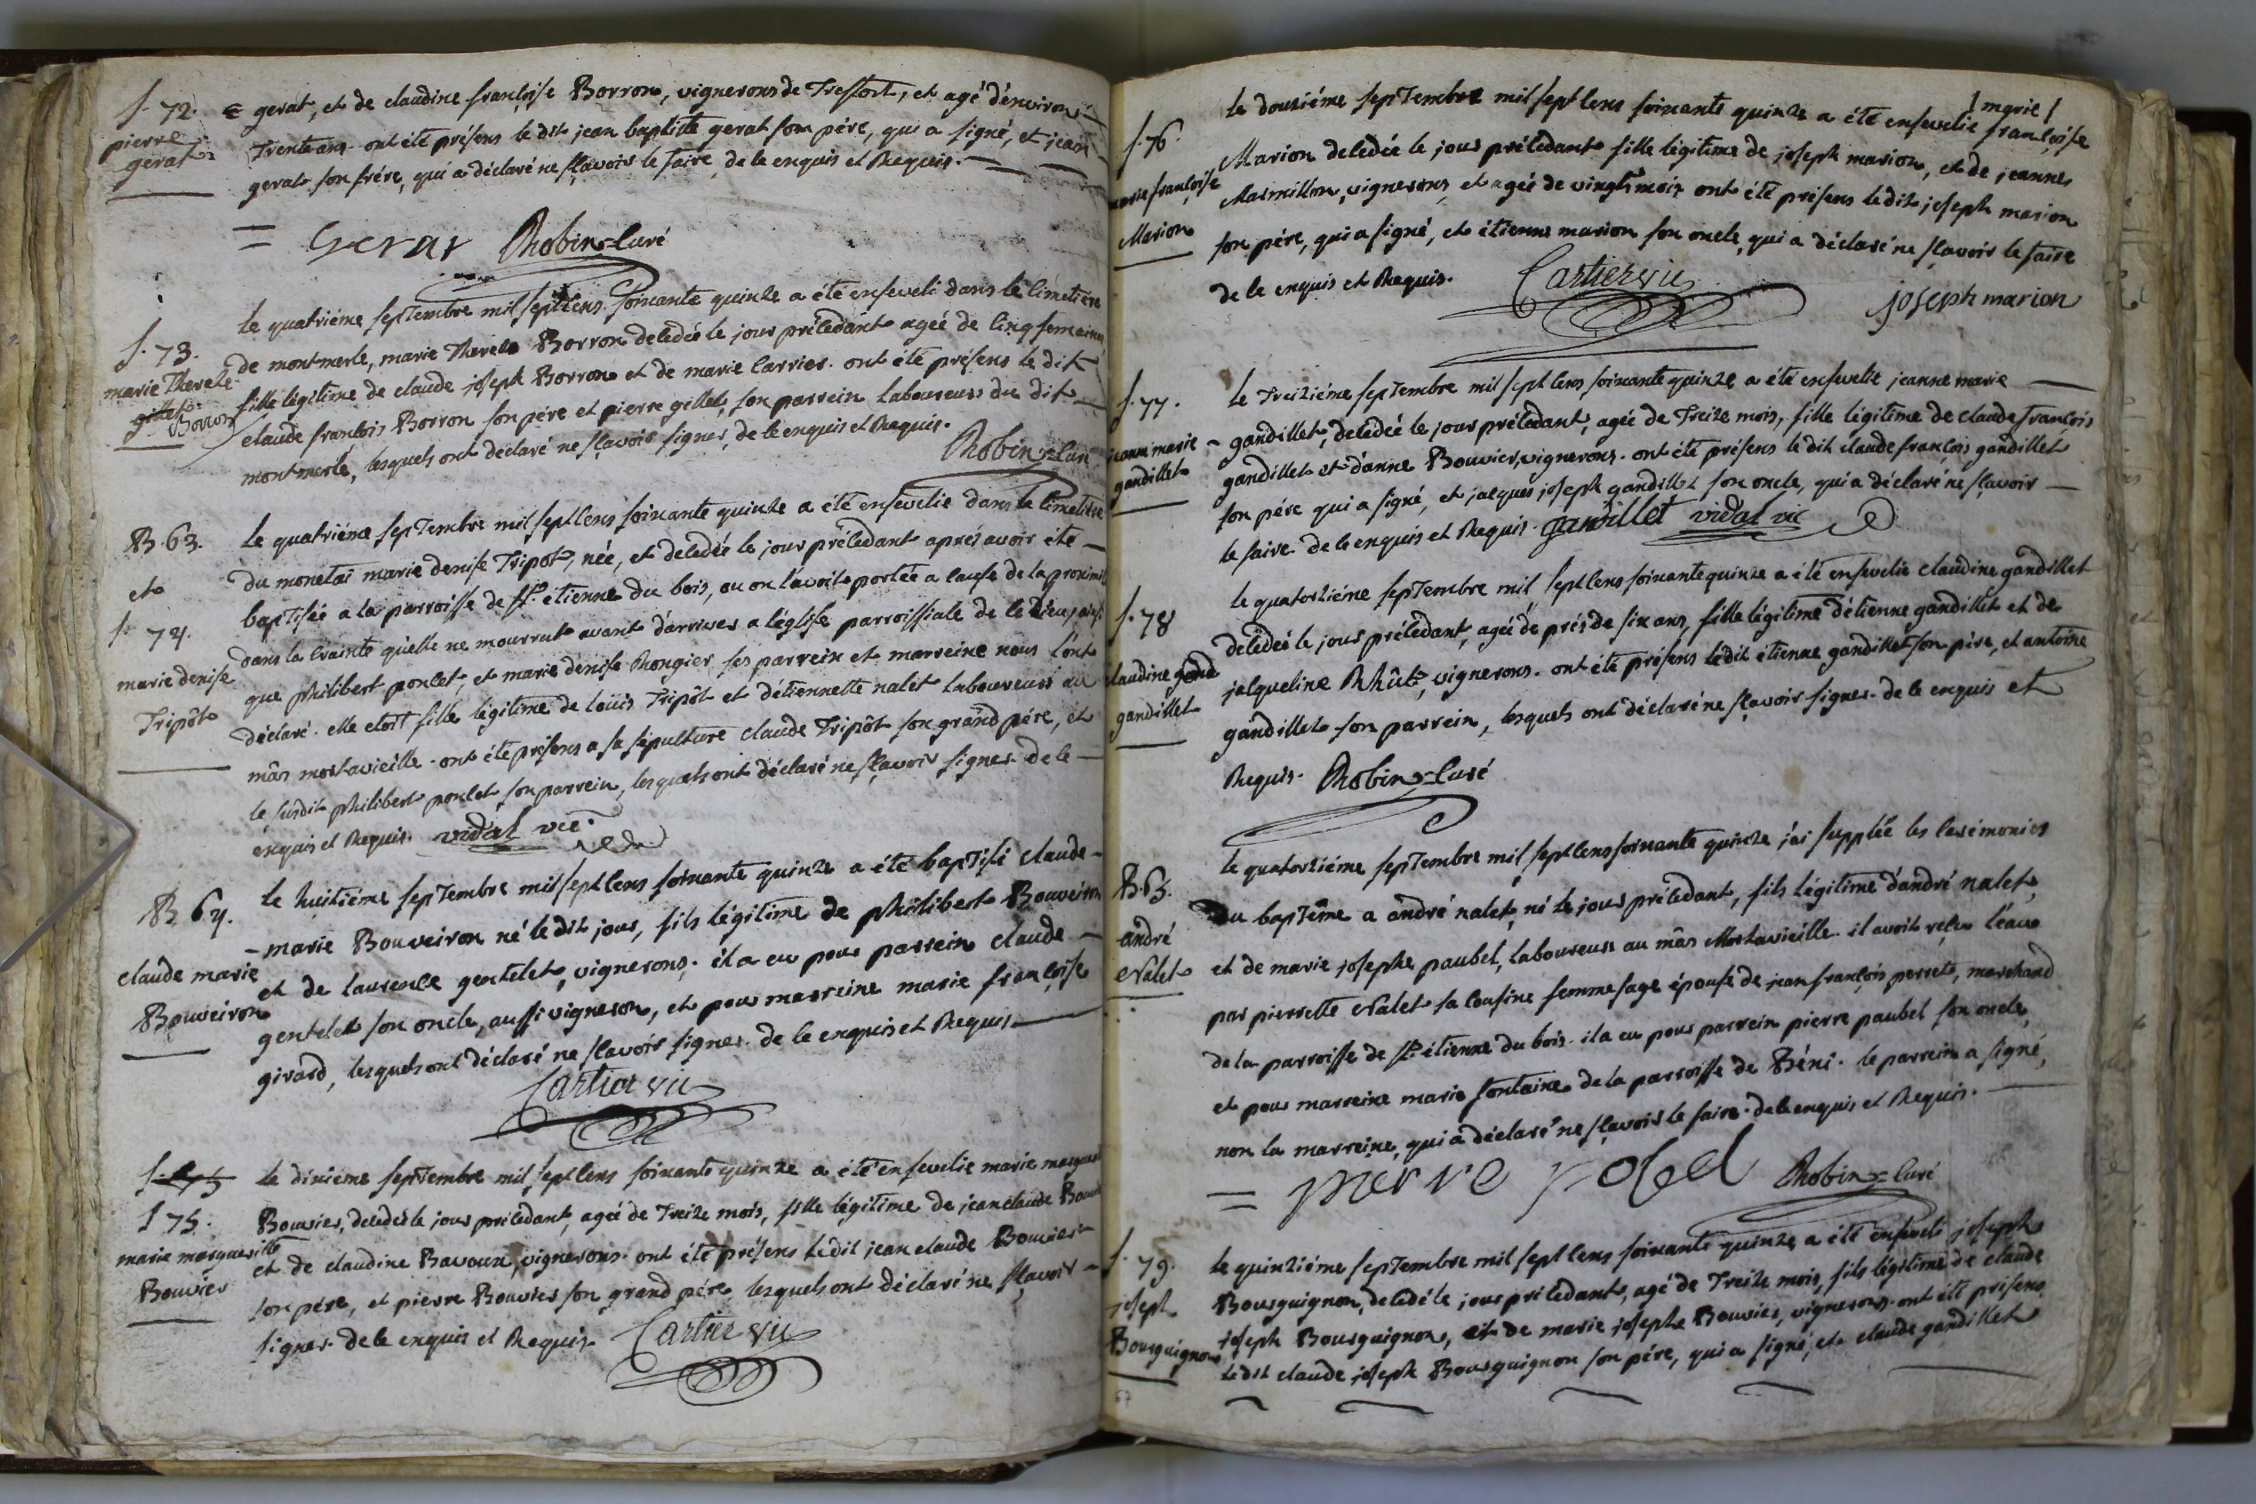 S. 72.
pierre
gerat
gerat, et de claudine francoise Borron, vignerons de Tresfort, et agé d'environ
Trente ans. ont été présens le dit jean baptiste gerat son pére, qui a signé, et jean
gerat son frére, qui a déclaré ne sçavoir le faire, de ce enquis et Requis.
Gerar Robin curé
S. 73.
marie Therese
Borron
le quatriéme septembre mil sept cens soixante quinze a été enseveli dans le cimetière
de montmerle, marie Therese Borron décédée le jour précédant agée de cinq semaines
fille légitime de claude joseph Borron et de marie Carrier. ont été présens le dit
claude francois Borron son pére et pierre gillet, son parrein Laboureurs du dit
montmerle, lesquels ont déclaré ne sçavoir signer, de ce enquis et Requis.
Robin curé
B. 63.
et
S. 74.
marie denise
Tripôt
Le quatriéme septembre mil sept cens soixante quinze a été ensevelie dans le cimetière
du monetai marie denise Tripot, née, et décédée le jour précédant aprés avoir été
baptisée a la parroisse de st. etienne du bois, ou on l'avoit portée a cause de la proximité
dans la crainte qu'elle ne mourrut avant d'arriver a léglise parroissiale de ce lieu, ainsi
que philibert poncet, et marie denise Rongier ses parrein et marreine nous l'ont
déclaré. elle etoit fille légitime de Loüis Tripôt et d'étiennette nalet Laboureurs au
mâs mortavieille. ont été présens a sa sépulture claude Tripôt son grand pére, et
le susdit philibert poncet son parrein, lesquels ont déclaré ne sçavoir signer. de ce
enquis et Requis. vidal vic.
B 64.
claude marie
Bouveiron
Le huitiéme septembre mil sept cens soixante quinze a été baptisé claude
marie Bouveiron né le dit jour, fils légitime de philibert Bouveiron
et de laurence gentelet, vignerons. il a eu pour parrein claude
gentelet son oncle, aussi vigneron, et pour marreine marie francoise
girard, lesquels ont déclaré ne sçavoir signer. de ce enquis et Requis
Cartier vic
S. 75
S 75.
marie marguerite
Bouvier
Le dixiéme septembre mil sept cens soixante quinze a été ensevelie marie marguerite
Bouvier, décédée le jour précédant, agée de Treize mois, fille légitime de jean claude Bouvier
et de claudine Bavoux, vignerons. ont été présens le dit jean claude Bouvier
son pére, et pierre Bouvier son grand pére, lesquels ont déclaré ne sçavoir
signer. de ce enquis et Requis. Cartier vic
S. 76.
marie françoise
Marion
/ marie /
Le douziéme septembre mil sept cens soixante quinze a été ensevelie françoise
Marion décédée le jour précédant fille légitime de joseph marion, et de jeanne
Marmillon, vignerons, et agée de vingt mois ont été présens le dit joseph marion
son pére, qui a signé, et étienne marion son oncle, qui a déclaré ne sçavoir le faire
de ce enquis et Requis. Cartier vic
joseph marion
S. 77.
jeanne marie
gandillet
Le Treiziéme septembre mil sept cens soixante quinze a été ensevelie jeanne marie
gandillet, décédée le jour précédant, agée de Treize mois, fille légitime de claude françois
gandillet et d'anne Bouvier, vignerons. ont été présens le dit claude françois gandillet
son pére qui a signé, et jacques joseph gandillet son oncle, qui a déclaré ne sçavoir
le faire. de ce enquis et Requis. gandillet vidal vic
S. 78
claudine
gandillet
Le quatorziéme septembre mil sept cens soixante quinze a été ensevelie claudine gandillet
décédée le jour précédant, agée de prés de six ans, fille légitime d'étienne gandillet et de
jacqueline Rhût, vignerons. ont été présens ledit étienne gandillet son pére, et antoine
gandillet son parrein, lesquels ont déclaré ne sçavoir signer. de ce enquis et
Requis. Robin curé
B. 65.
andré
Nalet
Le quatorziéme septembre mil sept cens soixante quinze j'ai supplée les cerémonies
du baptême a andré nalet, né le jour précédant, fils légitime d'andré nalet,
et de marie josephe paubel, Laboureurs au mâs Mortavieille. il avoit reçu l'eau
par pierrette Nalet sa cousine femme sage épouse de jean françois perret, marchand
de la parroisse de st. etienne du bois. il a eu pour parrein pierre paubel son oncle,
et pour marreine marie fontaine de la parroisse de Béni. le parrein a signé,
non la marreine, qui a déclaré ne sçavoir le faire. de ce enquis et Requis.
pierre pobel Robin curé
S. 79.
joseph
Bourguignon
Le quinziéme septembre mil sept cens soixante quinze a été enseveli joseph
Bourguignon, décédé le jour précédant, agé de Treize mois, fils légitime de claude
joseph Bourguignon, et de marie josephe Bouvier, vignerons. ont été présens
le dit claude joseph Bourguignon son pére, qui a signé, et claude gandillet